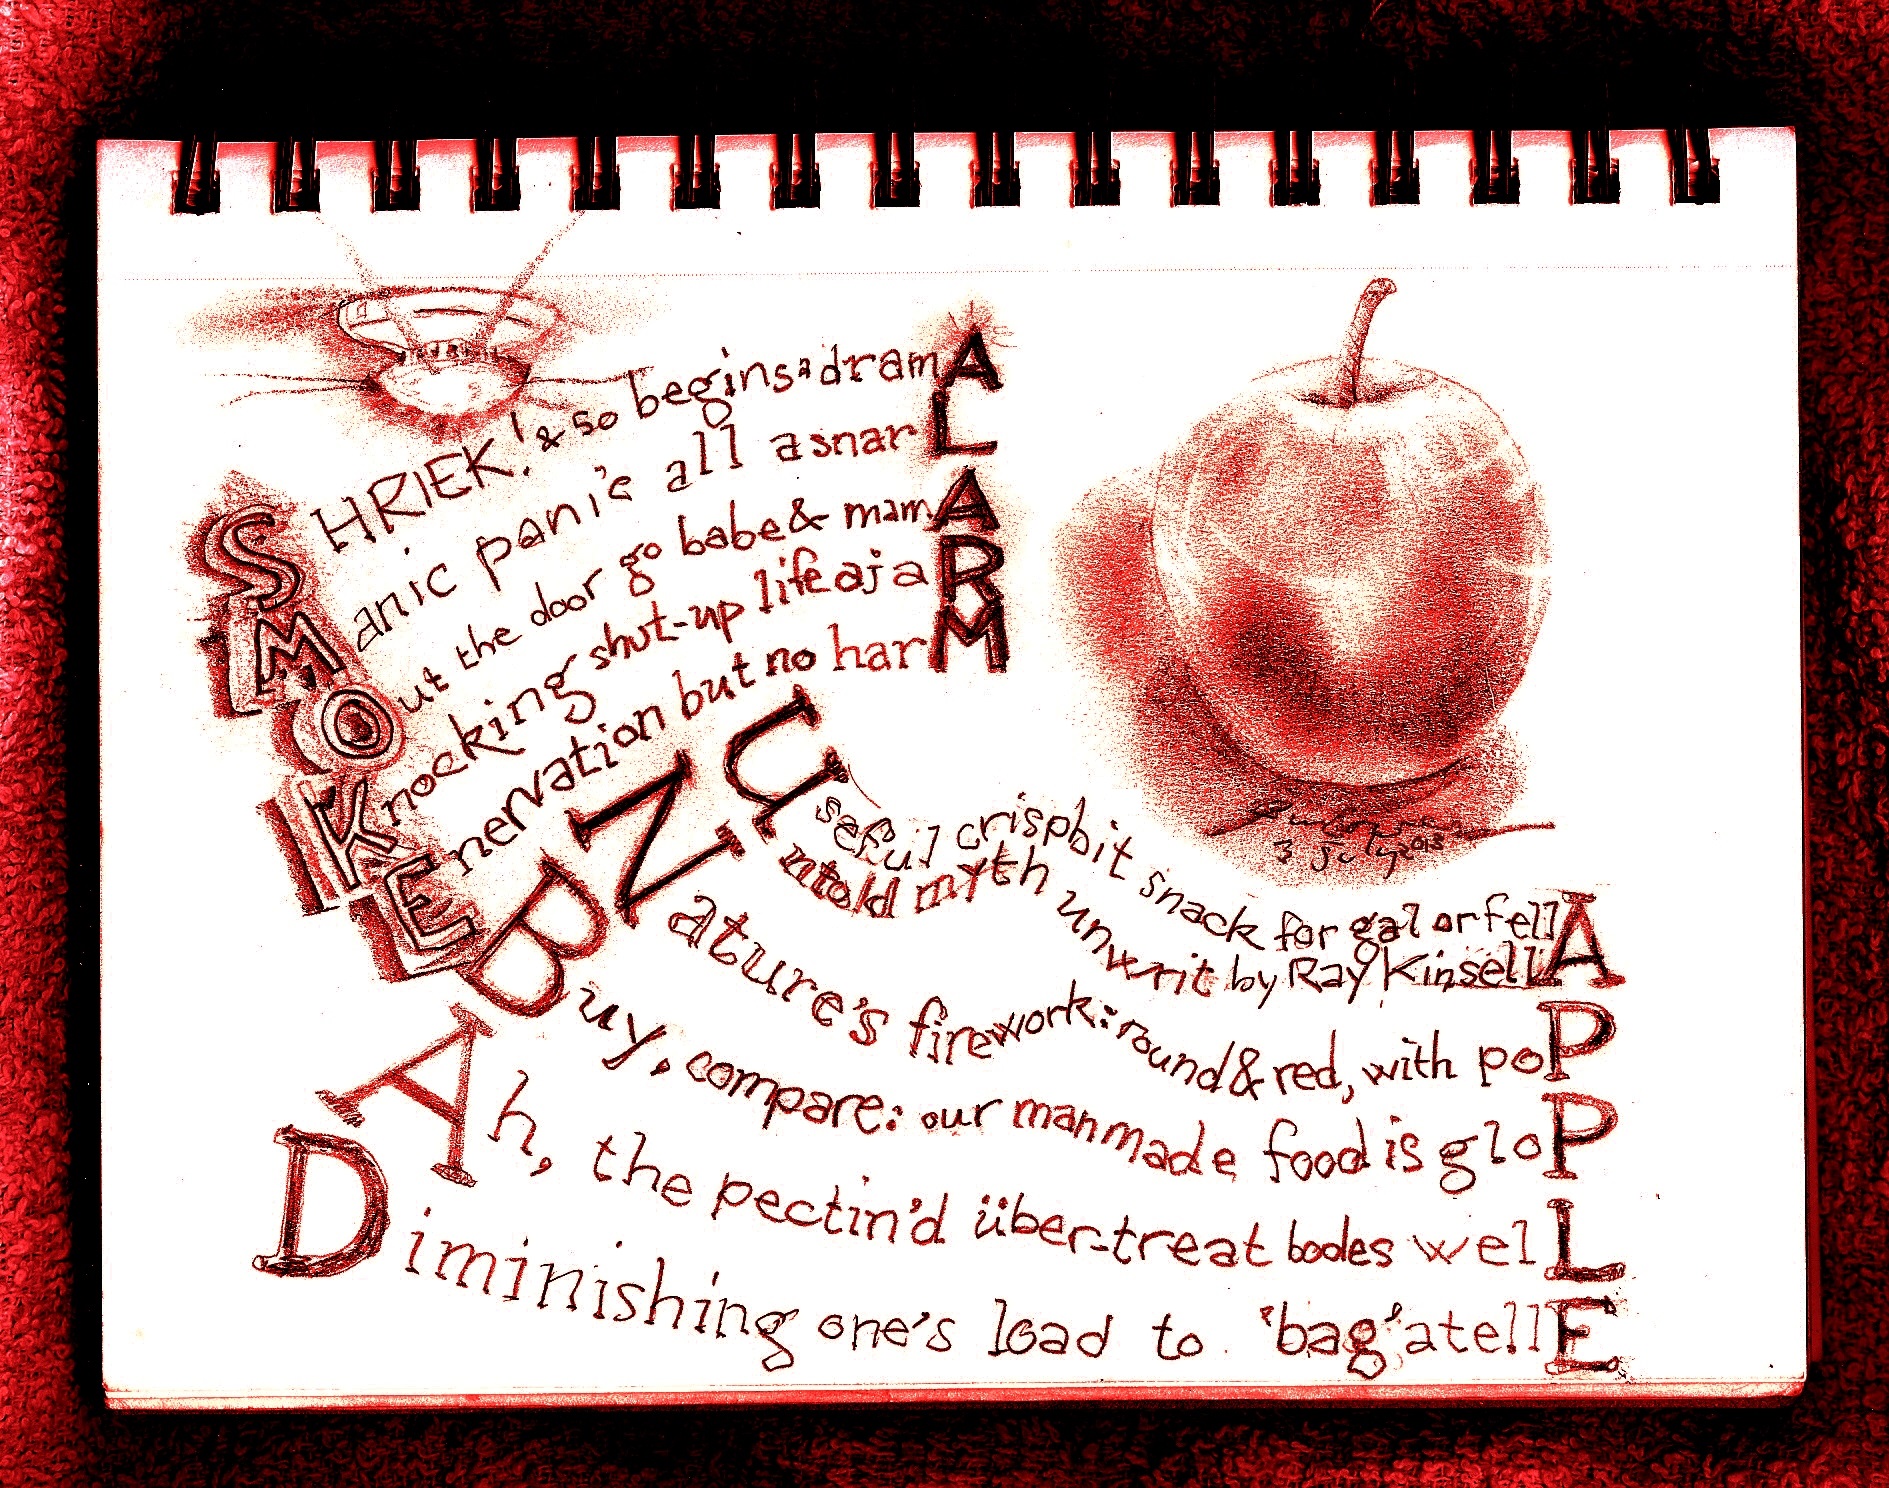 SHRIEK! & so begins a dramA
Manic panic all a snarL
Out the door go babe & mamA
Knocking shut-up life ajaR
Enervation but no harM
Useful crispbit snack for gal or fellA
Untold myth unwrit by Ray KinsellA
Nature's firework: round & red, with poP
Buy, compare: our manmade food is gloP
Ah, the pectin'd über-treat bodes welL
Diminishing one's load to 'bag'atellE
3 July 2013